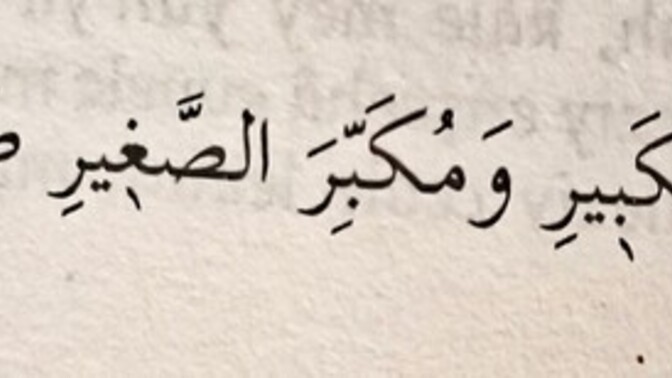 كَبِيرِ وَمُكَبِّرَ الصَّغِيرِ